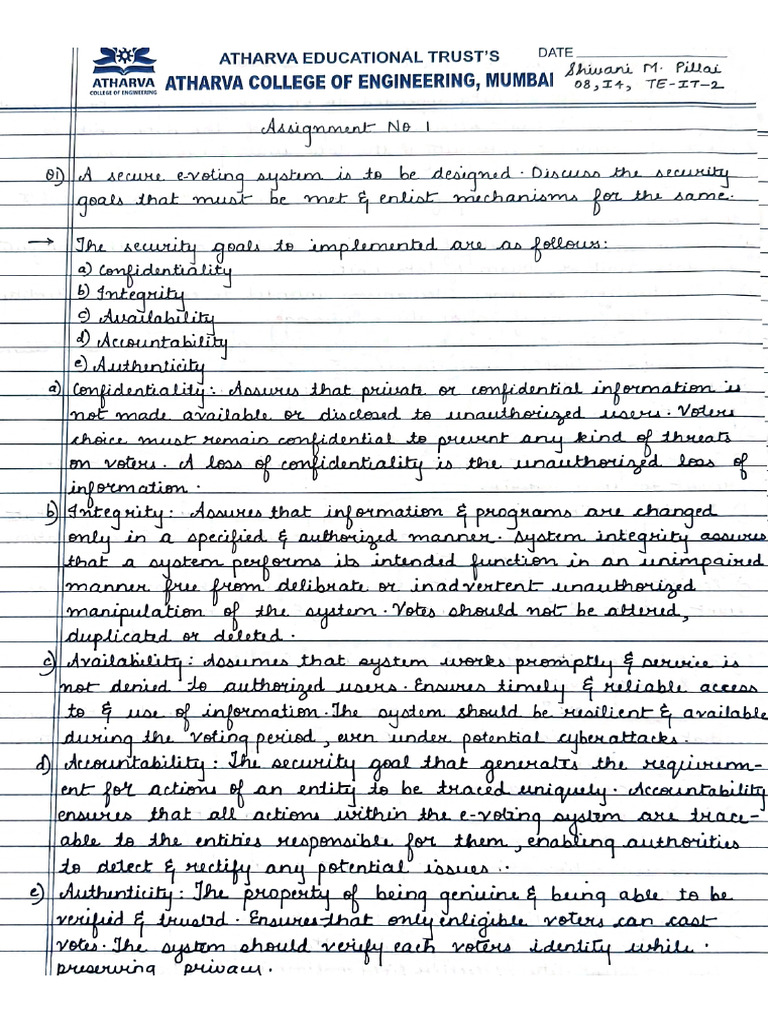 ATHARVA EDUCATIONAL TRUST'S DATE
ATHARVA COLLEGE OF ENGINEERING, MUMBAI Shivani M. Pillai
ATHARVA
COLLEGE OF ENGINEERING
08, I4, TE-IT-2
Assignment No 1
Q1) A secure e-voting system is to be designed. Discuss the security
goals that must be met & enlist mechanisms for the same.
→ The security goals to implemented are as follows:
a) Confidentiality
b) Integrity
c) Availability
d) Accountability
e) Authenticity
a) Confidentiality: Assures that private or confidential information is
not made available or disclosed to unauthorized users. Voters
choice must remain confidential to prevent any kind of threats
on voters. A loss of confidentiality is the unauthorized loss of
information.
b) Integrity: Assures that information & programs are changed
only in a specified & authorized manner. System integrity assures
that a system performs its intended function in an unimpaired
manner free from delibrate or inadvertent unauthorized
manipulation of the system. Votes should not be altered,
duplicated or deleted.
c) Availability: Assumes that system works promptly & service is
not denied to authorized users. Ensures timely & reliable access
to & use of information. The system should be resilient & available
during the voting period, even under potential cyberattacks.
d) Accountability: The security goal that generates the requirem-
ent for actions of an entity to be traced uniquely. Accountability
ensures that all actions within the e-voting system are trace-
able to the entities responsible for them, enabling authorities
to detect & rectify any potential issues..
e) Authenticity: The property of being geniuine & being able to be
verified & trusted. Ensures that only enligible voters can cast
votes. The system should verify each voters identity while.
preserving privacy.